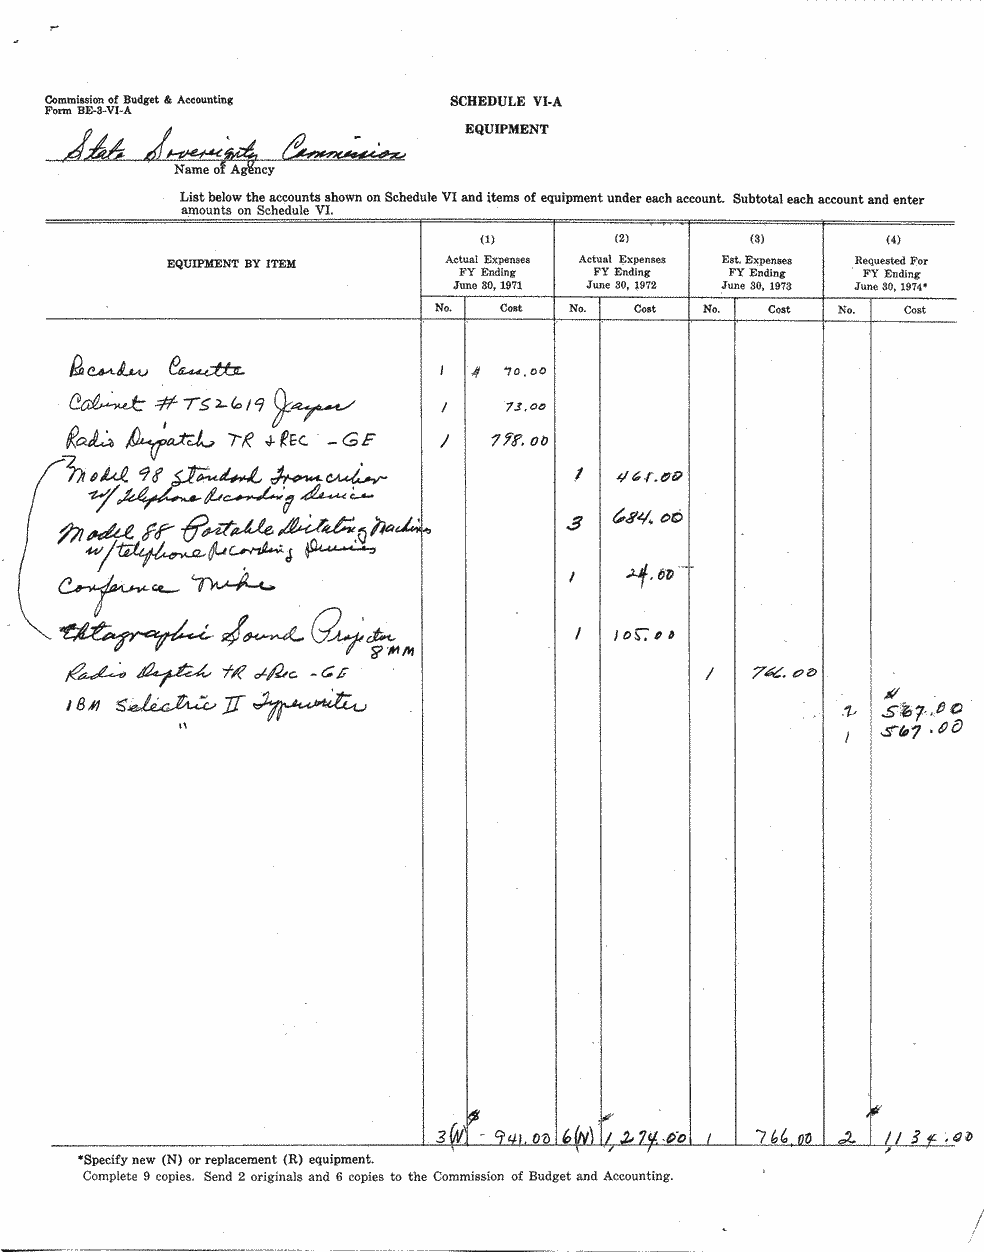 Commission of Budget & Accounting
Form BE-3-VI-A
SCHEDULE VI-A
EQUIPMENT
State Sovereignty Commission
Name of Agency
List below the accounts shown on Schedule VI and items of equipment under each account. Subtotal each account and enter
amounts on Schedule VI.
EQUIPMENT BY ITEM
(1) (2) (3) (4)
Actual Expenses Actual Expenses Est. Expenses Requested For
FY Ending FY Ending FY Ending FY Ending
June 30, 1971 June 30, 1972 June 30, 1973 June 30, 1974*
No. Cost No. Cost No. Cost No. Cost
Recorder Cassette 1 # 70.00
Cabinet # TS2619 Jasper 1 73.00
Radio Dispatch TR + REC - GE 1 798.00
Model 98 Standard Transcriber 1 461.00
w/ Telephone Recording Device
Model 88 Portable Dictating Machine 3 684.00
w/ telephone Recording Devices
Conference Mike 1 24.00
Ektagraphic Sound Projector 1 105.00
8 MM
Radio Disptch TR + Rec - GE 1 766.00
IBM Selectric II Typewriter 2 567.00
" 1 567.00
3(N) 941.00 6(N) 1,274.00 1 766.00 2 1,134.00
*Specify new (N) or replacement (R) equipment.
Complete 9 copies. Send 2 originals and 6 copies to the Commission of Budget and Accounting.